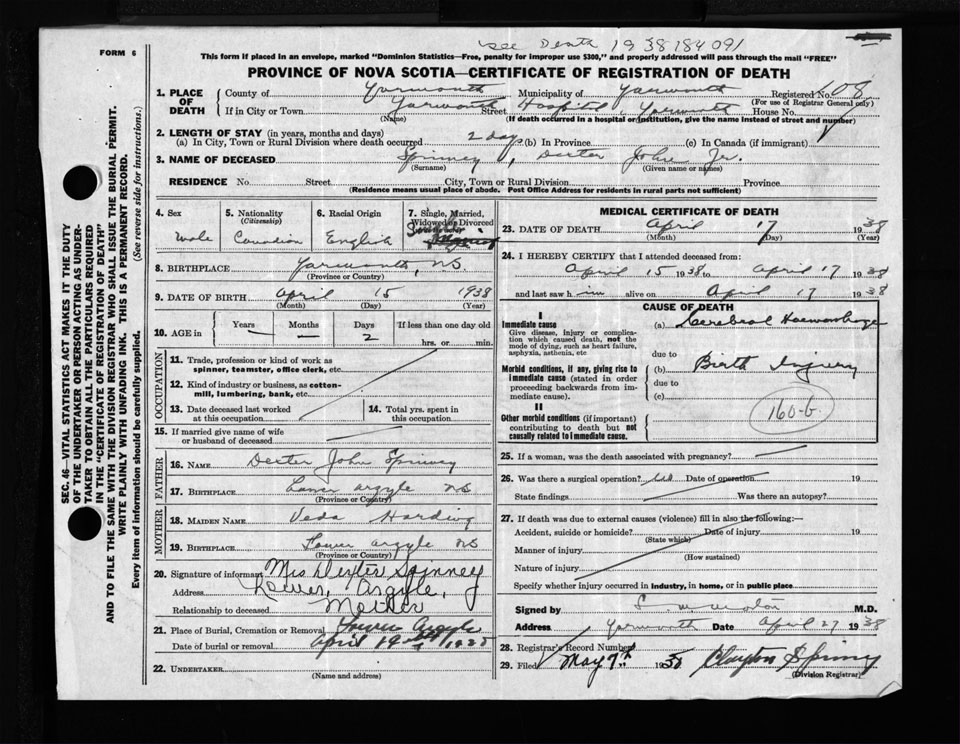 see Death 1938184091
FORM 6
This form if placed in an envelope, marked "Dominion Statistics—Free, penalty for improper use $300," and properly addressed will pass through the mail "FREE"
PROVINCE OF NOVA SCOTIA—CERTIFICATE OF REGISTRATION OF DEATH
SEC. 46—VITAL STATISTICS ACT MAKES IT THE DUTY
OF THE UNDERTAKER OR PERSON ACTING AS UNDER-
TAKER TO OBTAIN ALL THE PARTICULARS REQUIRED
IN THE "CERTIFICATE OF REGISTRATION OF DEATH"
AND TO FILE THE SAME WITH THE DIVISION REGISTRAR WHO SHALL ISSUE THE BURIAL PERMIT.
WRITE PLAINLY WITH UNFADING INK. THIS IS A PERMANENT RECORD.
Every item of information should be carefully supplied. (See reverse side for instructions.)
1. PLACE OF DEATH
County of Yarmouth Municipality of Yarmouth Registered No. 108
(For use of Registrar General only)
If in City or Town Yarmouth Street Hospital, Yarmouth House No.
(Name) (If death occurred in a hospital or institution, give the name instead of street and number)
2. LENGTH OF STAY (in years, months and days)
(a) In City, Town or Rural Division where death occurred 2 days (b) In Province (c) In Canada (if immigrant)
3. NAME OF DECEASED Spinney, Dexter John Jr.
(Surname) (Given name or names)
RESIDENCE No. Street City, Town or Rural Division Province
(Residence means usual place of abode. Post Office Address for residents in rural parts not sufficient)
4. Sex
Male
5. Nationality
(Citizenship)
Canadian
6. Racial Origin
English
7. Single, Married,
Widowed or Divorced
8. BIRTHPLACE Yarmouth, N.S.
(Province or Country)
9. DATE OF BIRTH April 15 1938
(Month) (Day) (Year)
10. AGE in
Years Months Days If less than one day old
— — 2 hrs. or min.
OCCUPATION
11. Trade, profession or kind of work as
spinner, teamster, office clerk, etc.
12. Kind of industry or business, as cotton-
mill, lumbering, bank, etc.
13. Date deceased last worked
at this occupation
14. Total yrs. spent in
this occupation
15. If married give name of wife
or husband of deceased
FATHER
16. NAME Dexter John Spinney
17. BIRTHPLACE Lower Argyle NS
(Province or Country)
MOTHER
18. MAIDEN NAME Veda Harding
19. BIRTHPLACE Lower Argyle NS
(Province or Country)
20. Signature of informant Mrs Dexter Spinney
Address Lower, Argyle,
Relationship to deceased Mother
21. Place of Burial, Cremation or Removal Lower Argyle
Date of burial or removal April 19
22. UNDERTAKER
(Name and address)
MEDICAL CERTIFICATE OF DEATH
23. DATE OF DEATH April 17 1938
(Month) (Day) (Year)
24. I HEREBY CERTIFY that I attended deceased from:
April 15 1938 to April 17 1938
and last saw h im alive on April 17 1938
CAUSE OF DEATH
I
Immediate cause
Give disease, injury or complica-
tion which caused death, not the
mode of dying, such as heart failure,
asphyxia, asthenia, etc
(a) Cerebral Haemorrhage
due to
Morbid conditions, if any, giving rise to
immediate cause (stated in order
proceeding backwards from im-
mediate cause).
(b) Birth Injury
due to
(c)
II
Other morbid conditions (if important)
contributing to death but not
causally related to immediate cause.
160-b
25. If a woman, was the death associated with pregnancy?
26. Was there a surgical operation? Date of operation 19
State findings Was there an autopsy?
27. If death was due to external causes (violence) fill in also the following:—
Accident, suicide or homicide? Date of injury 19
(State which)
Manner of injury
(How sustained)
Nature of injury
Specify whether injury occurred in industry, in home, or in public place
Signed by M.D.
Address Yarmouth Date April 27 1938
28. Registrar's Record Number
29. Filed May 7th 1938 Clayton Spinney
(Division Registrar)